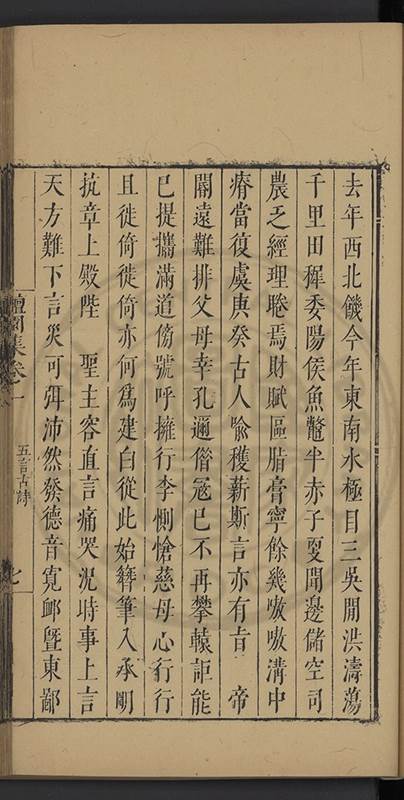 去年西北饑今年東南水極目三吳間洪濤蕩
千里田穉委陽侯魚鼈半赤子夏聞邊儲空司
農乏經理睠焉財賦區脂膏寧餘幾嗷嗷溝中
瘠當復虞庚癸古人喩穫薪斯言亦有旨 帝
閽遠難排父母幸孔邇借冦已不再攀轅詎能
已提攜滿道傍號呼擁行李惻愴慈母心行行
且徙倚徙倚亦何爲建白從此始簪筆入承明
抗章上殿陛 聖主容直言痛哭況時事上言
天方難下言災可弭沛然發德音寛卹曁東鄙
集卷一
五言古詩
七